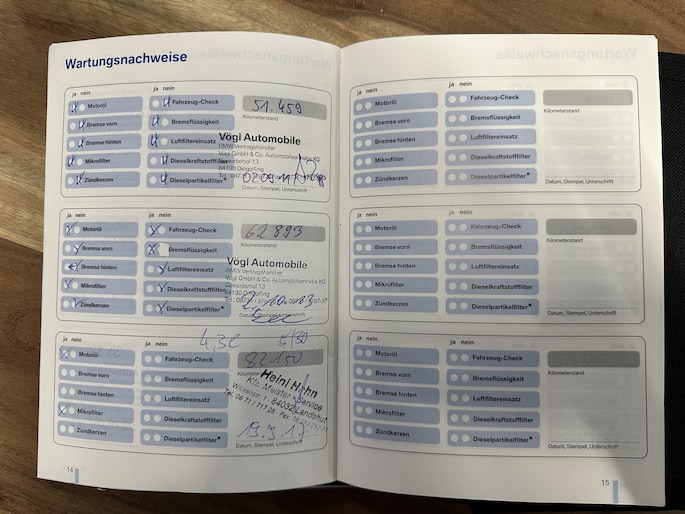 Wartungsnachweise
ja nein ja nein
Motoröl Fahrzeug-Check 51.459
Kilometerstand
Bremse vorn Bremsflüssigkeit
Bremse hinten Luftfiltereinsatz
Mikrofilter Dieselkraftstofffilter
Zündkerzen Dieselpartikelfilter*
Vögl Automobile
BMW Vertragshändler
Vögl GmbH & Co. Automobilvertriebs KG
Gewerbehof 13
84130 Dingolfing
Datum, Stempel, Unterschrift
ja nein ja nein
Motoröl Fahrzeug-Check 62893
Kilometerstand
Bremse vorn Bremsflüssigkeit
Bremse hinten Luftfiltereinsatz
Mikrofilter Dieselkraftstofffilter
Zündkerzen Dieselpartikelfilter*
Vögl Automobile
BMW Vertragshändler
Vögl GmbH & Co. Automobilvertriebs KG
Gewerbehof 13
84130 Dingolfing
Datum, Stempel, Unterschrift
ja nein ja nein
4,3l 5/30
Motoröl Fahrzeug-Check 82150
Kilometerstand
Bremse vorn Bremsflüssigkeit
Bremse hinten Luftfiltereinsatz
Mikrofilter Dieselkraftstofffilter
Zündkerzen Dieselpartikelfilter*
Heinl Hahn
Kfz. Meister Service
84032 Landshut
Tel. 08 71 / 717 28
Datum, Stempel, Unterschrift
14
ja nein ja nein
Motoröl Fahrzeug-Check
Kilometerstand
Bremse vorn Bremsflüssigkeit
Bremse hinten Luftfiltereinsatz
Mikrofilter Dieselkraftstofffilter
Zündkerzen Dieselpartikelfilter*
Datum, Stempel, Unterschrift
ja nein ja nein
Motoröl Fahrzeug-Check
Kilometerstand
Bremse vorn Bremsflüssigkeit
Bremse hinten Luftfiltereinsatz
Mikrofilter Dieselkraftstofffilter
Zündkerzen Dieselpartikelfilter*
Datum, Stempel, Unterschrift
ja nein ja nein
Motoröl Fahrzeug-Check
Kilometerstand
Bremse vorn Bremsflüssigkeit
Bremse hinten Luftfiltereinsatz
Mikrofilter Dieselkraftstofffilter
Zündkerzen Dieselpartikelfilter*
Datum, Stempel, Unterschrift
15